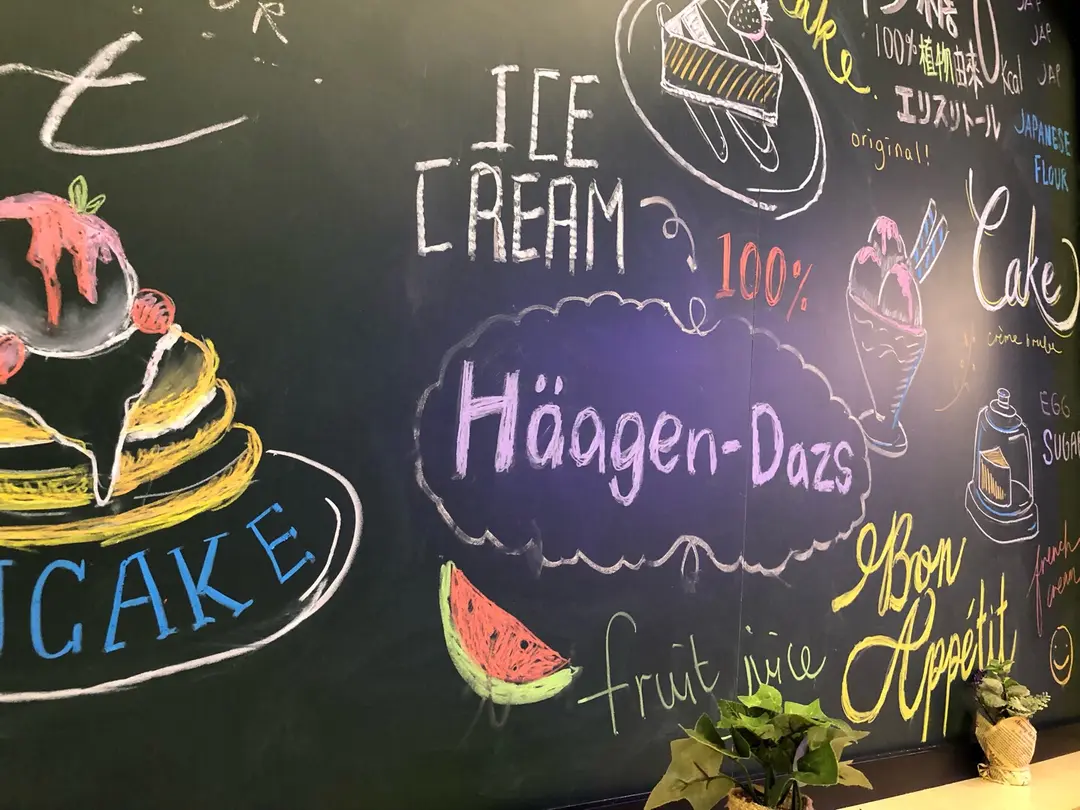 ICE
CREAM
100%
Häagen-Dazs
NCAKE
fruit juice
Bon
Appétit
Cake
100%植物由来
0kcal
エリスリトール
original!
JAP
JAP
JAP
JAPANESE
FLOUR
Cake
EGG
SUGAR
french
cream